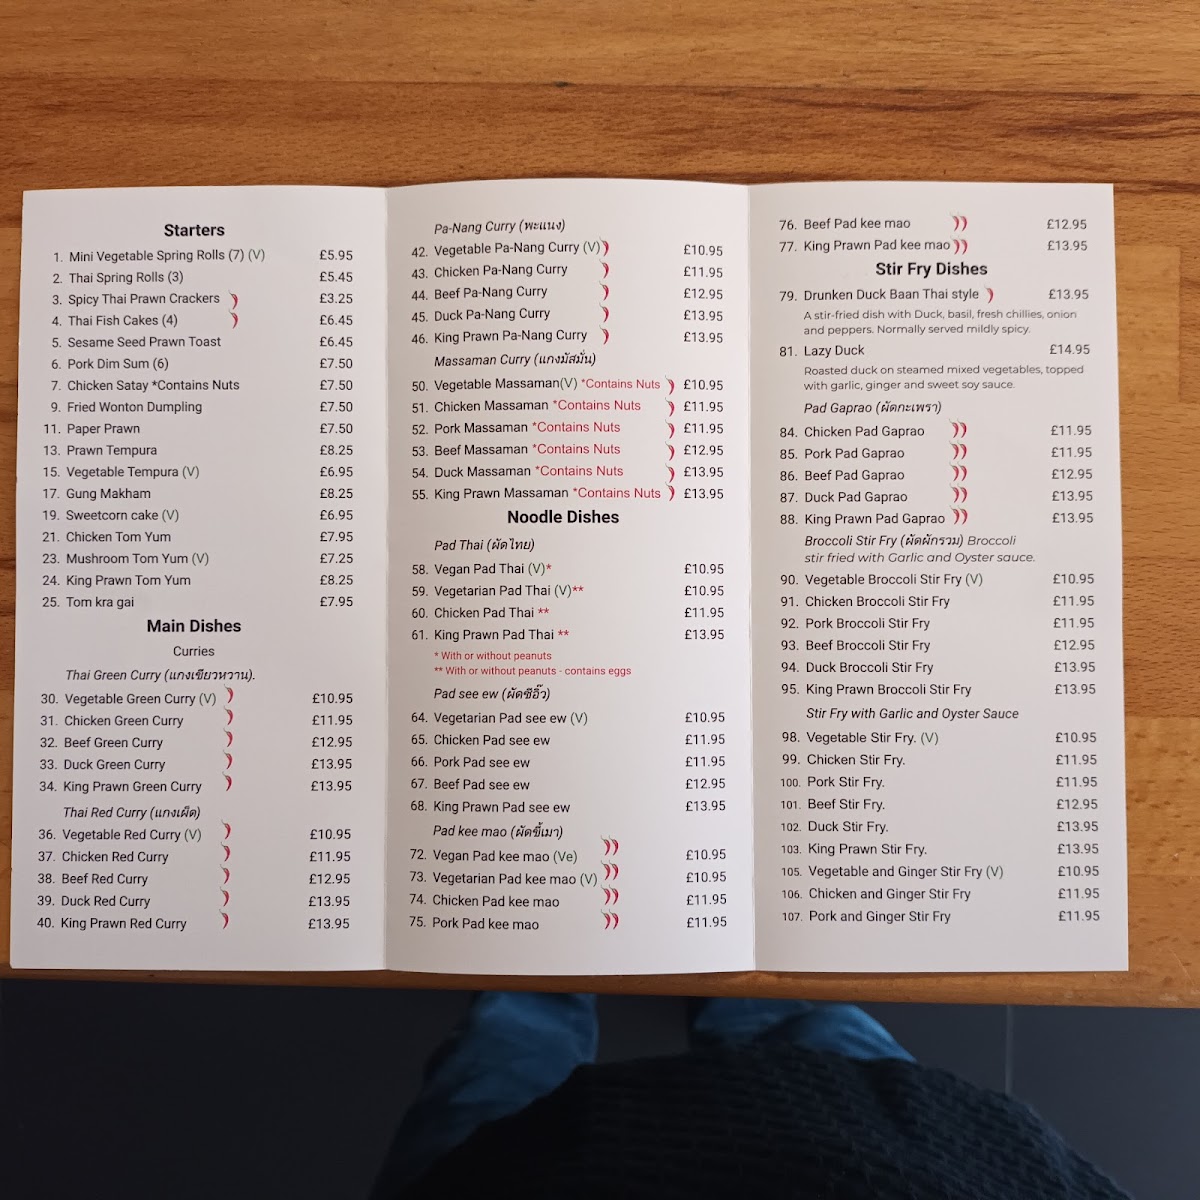 Starters
1. Mini Vegetable Spring Rolls (7) (V) £5.95
2. Thai Spring Rolls (3) £5.45
3. Spicy Thai Prawn Crackers £3.25
4. Thai Fish Cakes (4) £6.45
5. Sesame Seed Prawn Toast £6.45
6. Pork Dim Sum (6) £7.50
7. Chicken Satay *Contains Nuts £7.50
9. Fried Wonton Dumpling £7.50
11. Paper Prawn £7.50
13. Prawn Tempura £8.25
15. Vegetable Tempura (V) £6.95
17. Gung Makham £8.25
19. Sweetcorn cake (V) £6.95
21. Chicken Tom Yum £7.95
23. Mushroom Tom Yum (V) £7.25
24. King Prawn Tom Yum £8.25
25. Tom kra gai £7.95
Main Dishes
Curries
Thai Green Curry (แกงเขียวหวาน).
30. Vegetable Green Curry (V) £10.95
31. Chicken Green Curry £11.95
32. Beef Green Curry £12.95
33. Duck Green Curry £13.95
34. King Prawn Green Curry £13.95
Thai Red Curry (แกงเผ็ด)
36. Vegetable Red Curry (V) £10.95
37. Chicken Red Curry £11.95
38. Beef Red Curry £12.95
39. Duck Red Curry £13.95
40. King Prawn Red Curry £13.95
Pa-Nang Curry (พะแนง)
42. Vegetable Pa-Nang Curry (V) £10.95
43. Chicken Pa-Nang Curry £11.95
44. Beef Pa-Nang Curry £12.95
45. Duck Pa-Nang Curry £13.95
46. King Prawn Pa-Nang Curry £13.95
Massaman Curry (แกงมัสมั่น)
50. Vegetable Massaman(V) *Contains Nuts £10.95
51. Chicken Massaman *Contains Nuts £11.95
52. Pork Massaman *Contains Nuts £11.95
53. Beef Massaman *Contains Nuts £12.95
54. Duck Massaman *Contains Nuts £13.95
55. King Prawn Massaman *Contains Nuts £13.95
Noodle Dishes
Pad Thai (ผัดไทย)
58. Vegan Pad Thai (V)* £10.95
59. Vegetarian Pad Thai (V)** £10.95
60. Chicken Pad Thai ** £11.95
61. King Prawn Pad Thai ** £13.95
* With or without peanuts
** With or without peanuts - contains eggs
Pad see ew (ผัดซีอิ๊ว)
64. Vegetarian Pad see ew (V) £10.95
65. Chicken Pad see ew £11.95
66. Pork Pad see ew £11.95
67. Beef Pad see ew £12.95
68. King Prawn Pad see ew £13.95
Pad kee mao (ผัดขี้เมา)
72. Vegan Pad kee mao (Ve) £10.95
73. Vegetarian Pad kee mao (V) £10.95
74. Chicken Pad kee mao £11.95
75. Pork Pad kee mao £11.95
76. Beef Pad kee mao £12.95
77. King Prawn Pad kee mao £13.95
Stir Fry Dishes
79. Drunken Duck Baan Thai style £13.95
A stir-fried dish with Duck, basil, fresh chillies, onion
and peppers. Normally served mildly spicy.
81. Lazy Duck £14.95
Roasted duck on steamed mixed vegetables, topped
with garlic, ginger and sweet soy sauce.
Pad Gaprao (ผัดกะเพรา)
84. Chicken Pad Gaprao £11.95
85. Pork Pad Gaprao £11.95
86. Beef Pad Gaprao £12.95
87. Duck Pad Gaprao £13.95
88. King Prawn Pad Gaprao £13.95
Broccoli Stir Fry (ผัดผักรวม) Broccoli
stir fried with Garlic and Oyster sauce.
90. Vegetable Broccoli Stir Fry (V) £10.95
91. Chicken Broccoli Stir Fry £11.95
92. Pork Broccoli Stir Fry £11.95
93. Beef Broccoli Stir Fry £12.95
94. Duck Broccoli Stir Fry £13.95
95. King Prawn Broccoli Stir Fry £13.95
Stir Fry with Garlic and Oyster Sauce
98. Vegetable Stir Fry. (V) £10.95
99. Chicken Stir Fry. £11.95
100. Pork Stir Fry. £11.95
101. Beef Stir Fry. £12.95
102. Duck Stir Fry. £13.95
103. King Prawn Stir Fry. £13.95
105. Vegetable and Ginger Stir Fry (V) £10.95
106. Chicken and Ginger Stir Fry £11.95
107. Pork and Ginger Stir Fry £11.95